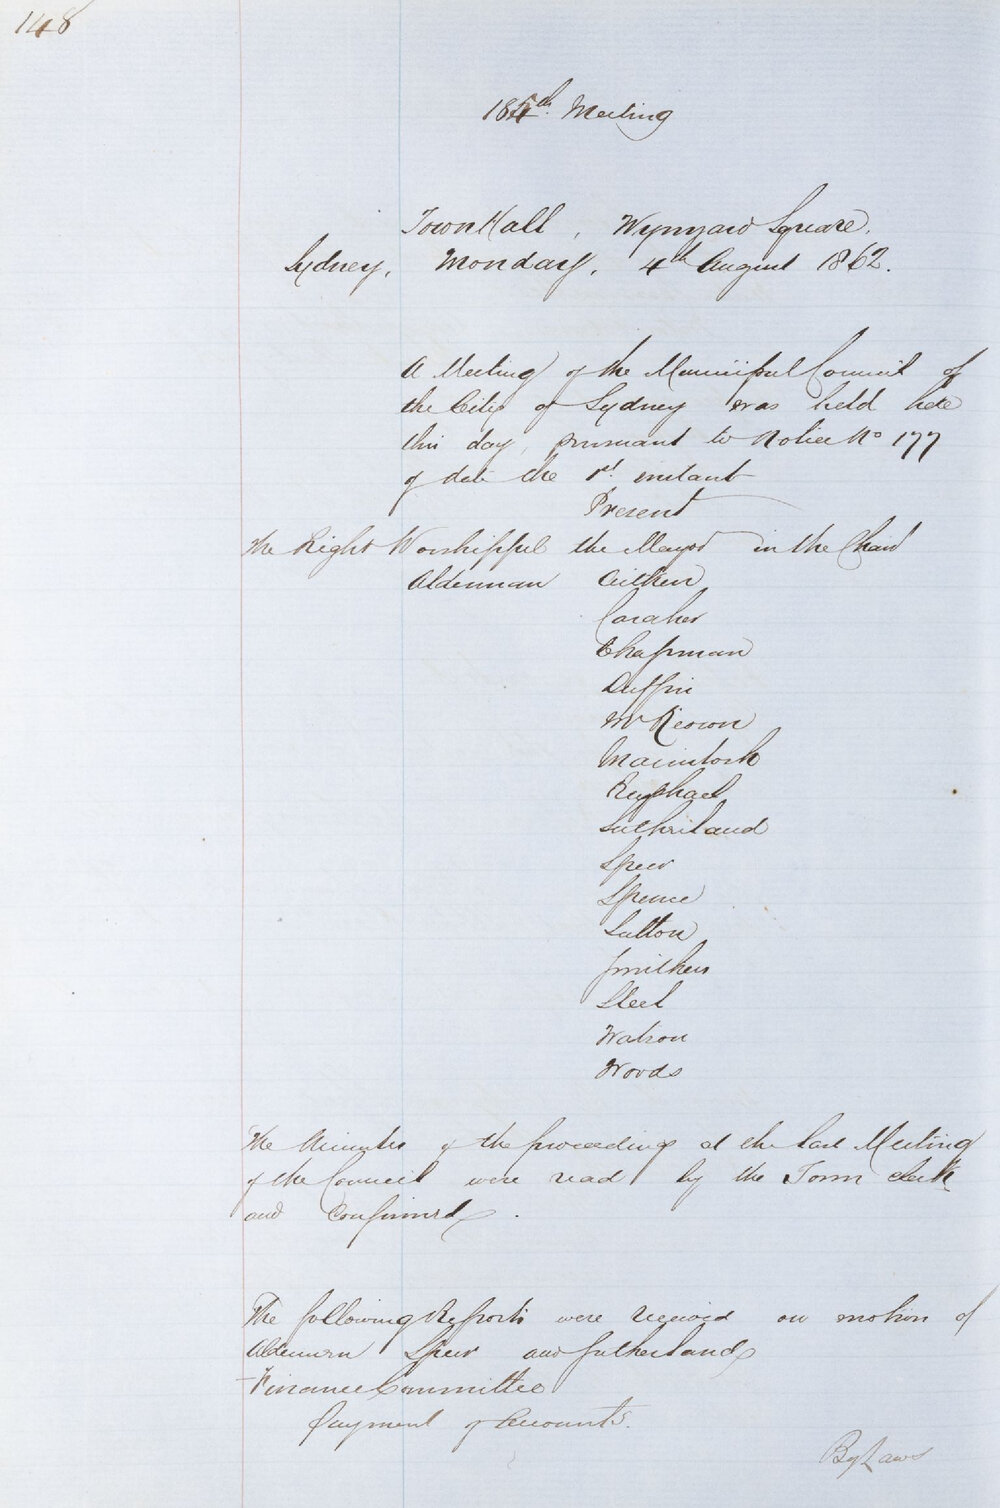 148
184th Meeting
Town Hall, Wynyard Square,
Sydney, Monday, 4th August 1862.
A Meeting of the Municipal Council of
the City of Sydney was held here
this day, pursuant to Notice No 177
of date the 1st instant
Present
The Right Worshipful the Mayor in the Chair
Alderman Aitken
Caraher
Chapman
Duffin
McKeown
Macintosh
Raphael
Sutherland
Speer
Spence
Sutton
Smithers
Steel
Watson
Woods
The Minutes of the proceedings at the last Meeting
of the Council were read by the Town Clerk
and Confirmed.
The following Reports were received on motion of
Aldermen Speer and Sutherland
Finance Committee
Payment of Accounts.
By Laws